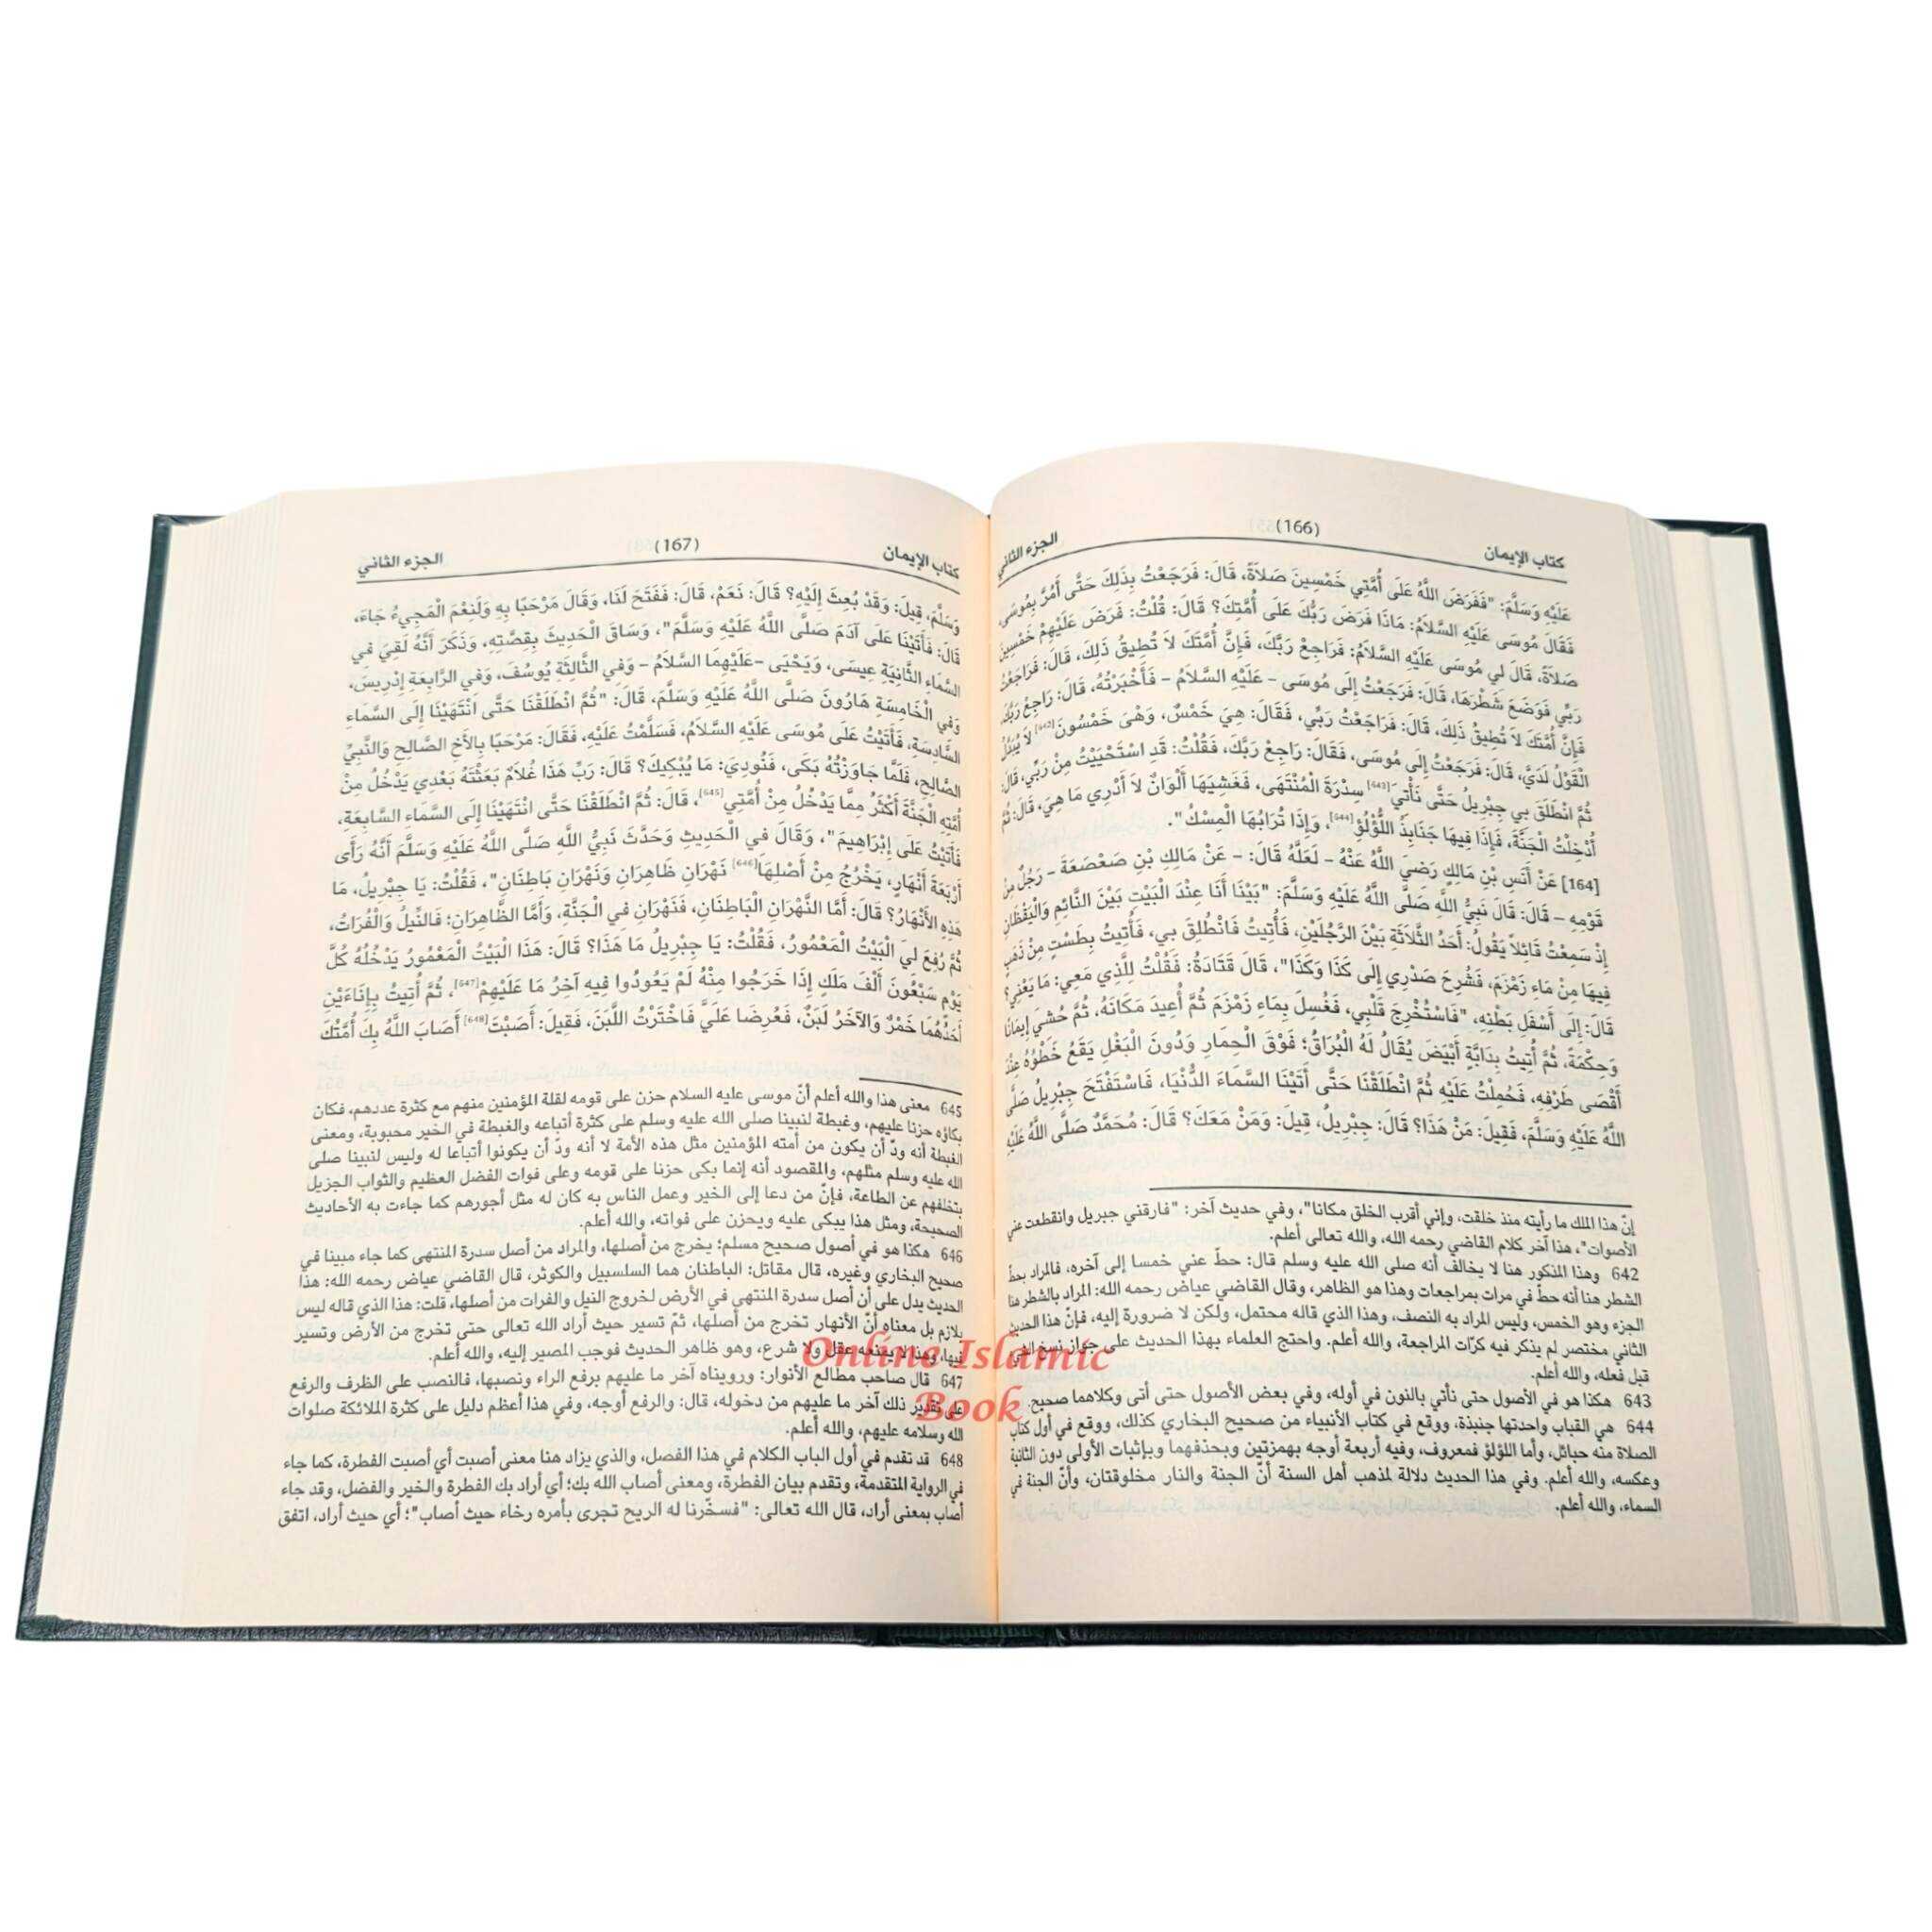 كتاب الإيمان (166) الجزء الثاني
عَلَيْهِ وَسَلَّمَ: "فَفَرَضَ اللَّهُ عَلَى أُمَّتِي خَمْسِينَ صَلاَةً، قَالَ: فَرَجَعْتُ بِذَلِكَ حَتَّى أَمُرَّ بِمُوسَى،
فَقَالَ مُوسَى عَلَيْهِ السَّلاَمُ: مَاذَا فَرَضَ رَبُّكَ عَلَى أُمَّتِكَ؟ قَالَ: قُلْتُ: فَرَضَ عَلَيْهِمْ خَمْسِينَ
صَلاَةً، قَالَ لِي مُوسَى عَلَيْهِ السَّلاَمُ: فَرَاجِعْ رَبَّكَ، فَإِنَّ أُمَّتَكَ لاَ تُطِيقُ ذَلِكَ، قَالَ: فَرَاجَعْتُ
رَبِّي فَوَضَعَ شَطْرَهَا، قَالَ: فَرَجَعْتُ إِلَى مُوسَى - عَلَيْهِ السَّلاَمُ - فَأَخْبَرْتُهُ، قَالَ: رَاجِعْ رَبَّكَ،
فَإِنَّ أُمَّتَكَ لاَ تُطِيقُ ذَلِكَ، قَالَ: فَرَاجَعْتُ رَبِّي، فَقَالَ: هِيَ خَمْسٌ، وَهْىَ خَمْسُونَ[642] لاَ يُبَدَّلُ
الْقَوْلُ لَدَيَّ، قَالَ: فَرَجَعْتُ إِلَى مُوسَى، فَقَالَ: رَاجِعْ رَبَّكَ، فَقُلْتُ: قَدِ اسْتَحْيَيْتُ مِنْ رَبِّي، قَالَ:
ثُمَّ انْطَلَقَ بِي جِبْرِيلُ حَتَّى نَأْتِيَ[643] سِدْرَةَ الْمُنْتَهَى، فَغَشِيَهَا أَلْوَانٌ لاَ أَدْرِي مَا هِيَ، قَالَ: ثُمَّ
أُدْخِلْتُ الْجَنَّةَ، فَإِذَا فِيهَا جَنَابِذُ اللُّؤْلُؤِ[644]، وَإِذَا تُرَابُهَا الْمِسْكُ".
[164] عَنْ أَنَسِ بْنِ مَالِكٍ رَضيَ اللَّهُ عَنْهُ - لَعَلَّهُ قَالَ: - عَنْ مَالِكِ بْنِ صَعْصَعَةَ - رَجُلٌ مِنْ
قَوْمِهِ - قَالَ: قَالَ نَبِيُّ اللَّهِ صَلَّى اللَّهُ عَلَيْهِ وَسَلَّمَ: "بَيْنَا أَنَا عِنْدَ الْبَيْتِ بَيْنَ النَّائِمِ وَالْيَقْظَانِ
إِذْ سَمِعْتُ قَائِلاً يَقُولُ: أَحَدُ الثَّلاَثَةِ بَيْنَ الرَّجُلَيْنِ، فَأُتِيتُ فَانْطُلِقَ بِي، فَأُتِيتُ بِطَسْتٍ مِنْ ذَهَبٍ
فِيهَا مِنْ مَاءِ زَمْزَمَ، فَشُرِحَ صَدْرِي إِلَى كَذَا وَكَذَا"، قَالَ قَتَادَةُ: فَقُلْتُ لِلَّذِي مَعِي: مَا يَعْنِي؟
قَالَ: إِلَى أَسْفَلِ بَطْنِهِ، "فَاسْتُخْرِجَ قَلْبِي، فَغُسِلَ بِمَاءِ زَمْزَمَ ثُمَّ أُعِيدَ مَكَانَهُ، ثُمَّ حُشيَ إِيمَانًا
وَحِكْمَةً، ثُمَّ أُتِيتُ بِدَابَّةٍ أَبْيَضَ يُقَالُ لَهُ الْبُرَاقُ؛ فَوْقَ الْحِمَارِ وَدُونَ الْبَغْلِ يَقَعُ خَطْوُهُ عِنْدَ
أَقْصَى طَرْفِهِ، فَحُمِلْتُ عَلَيْهِ ثُمَّ انْطَلَقْنَا حَتَّى أَتَيْنَا السَّمَاءَ الدُّنْيَا، فَاسْتَفْتَحَ جِبْرِيلُ صَلَّى
اللَّهُ عَلَيْهِ وَسَلَّمَ، فَقِيلَ: مَنْ هَذَا؟ قَالَ: جِبْرِيلُ، قِيلَ: وَمَنْ مَعَكَ؟ قَالَ: مُحَمَّدٌ صَلَّى اللَّهُ عَلَيْهِ
إنّ هذا الملك ما رأيته منذ خلقت، وإني أقرب الخلق مكانا"، وفي حديث آخر: "فارقني جبريل وانقطعت عني
الأصوات"، هذا آخر كلام القاضي رحمه الله، والله تعالى أعلم.
642 وهذا المذكور هنا لا يخالف أنه صلى الله عليه وسلم قال: حطّ عني خمسا إلى آخره، فالمراد بحطّ
الشطر هنا أنه حطّ في مرات بمراجعات وهذا هو الظاهر، وقال القاضي عياض رحمه الله: المراد بالشطر هنا
الجزء وهو الخمس، وليس المراد به النصف، وهذا الذي قاله محتمل، ولكن لا ضرورة إليه، فإنّ هذا الحديث
الثاني مختصر لم يذكر فيه كرّات المراجعة، والله أعلم. واحتج العلماء بهذا الحديث على جواز نسخ الشيء
قبل فعله، والله أعلم.
643 هكذا هو في الأصول حتى نأتي بالنون في أوله، وفي بعض الأصول حتى أتى وكلاهما صحيح.
644 هي القباب واحدتها جنبذة، ووقع في كتاب الأنبياء من صحيح البخاري كذلك، ووقع في أول كتاب
الصلاة منه حبائل، وأما اللؤلؤ فمعروف، وفيه أربعة أوجه بهمزتين وبحذفهما وبإثبات الأولى دون الثانية
وعكسه، والله أعلم. وفي هذا الحديث دلالة لمذهب أهل السنة أنّ الجنة والنار مخلوقتان، وأنّ الجنة في
السماء، والله أعلم.
كتاب الإيمان (167) الجزء الثاني
وَسَلَّمَ، قِيلَ: وَقَدْ بُعِثَ إِلَيْهِ؟ قَالَ: نَعَمْ، قَالَ: فَفَتَحَ لَنَا، وَقَالَ مَرْحَبًا بِهِ وَلَنِعْمَ الْمَجِيءُ جَاءَ،
قَالَ: فَأَتَيْنَا عَلَى آدَمَ صَلَّى اللَّهُ عَلَيْهِ وَسَلَّمَ"، وَسَاقَ الْحَدِيثَ بِقِصَّتِهِ، وَذَكَرَ أَنَّهُ لَقِيَ فِي
السَّمَاءِ الثَّانِيَةِ عِيسَى، وَيَحْيَى -عَلَيْهِمَا السَّلاَمُ - وَفي الثَّالِثَةِ يُوسُفَ، وَفي الرَّابِعَةِ إِدْرِيسَ،
وَفي الْخَامِسَةِ هَارُونَ صَلَّى اللَّهُ عَلَيْهِ وَسَلَّمَ، قَالَ: "ثُمَّ انْطَلَقْنَا حَتَّى انْتَهَيْنَا إِلَى السَّمَاءِ
السَّادِسَةِ، فَأَتَيْتُ عَلَى مُوسَى عَلَيْهِ السَّلاَمُ، فَسَلَّمْتُ عَلَيْهِ، فَقَالَ: مَرْحَبًا بِالأَخِ الصَّالِحِ وَالنَّبِيِّ
الصَّالِحِ، فَلَمَّا جَاوَزْتُهُ بَكَى، فَنُودِيَ: مَا يُبْكِيكَ؟ قَالَ: رَبِّ هَذَا غُلاَمٌ بَعَثْتَهُ بَعْدِي يَدْخُلُ مِنْ
أُمَّتِهِ الْجَنَّةَ أَكْثَرُ مِمَّا يَدْخُلُ مِنْ أُمَّتِي[645]، قَالَ: ثُمَّ انْطَلَقْنَا حَتَّى انْتَهَيْنَا إِلَى السَّمَاءِ السَّابِعَةِ،
فَأَتَيْتُ عَلَى إِبْرَاهِيمَ"، وَقَالَ في الْحَدِيثِ وَحَدَّثَ نَبِيُّ اللَّهِ صَلَّى اللَّهُ عَلَيْهِ وَسَلَّمَ أَنَّهُ رَأَى
أَرْبَعَةَ أَنْهَارٍ، يَخْرُجُ مِنْ أَصْلِهَا[646] نَهْرَانِ ظَاهِرَانِ وَنَهْرَانِ بَاطِنَانِ"، فَقُلْتُ: يَا جِبْرِيلُ، مَا
هَذِهِ الأَنْهَارُ؟ قَالَ: أَمَّا النَّهْرَانِ الْبَاطِنَانِ، فَنَهْرَانِ في الْجَنَّةِ، وَأَمَّا الظَّاهِرَانِ؛ فَالنِّيلُ وَالْفُرَاتُ،
ثُمَّ رُفِعَ لِيَ الْبَيْتُ الْمَعْمُورُ، فَقُلْتُ: يَا جِبْرِيلُ مَا هَذَا؟ قَالَ: هَذَا الْبَيْتُ الْمَعْمُورُ يَدْخُلُهُ كُلَّ
يَوْمٍ سَبْعُونَ أَلْفَ مَلَكٍ إِذَا خَرَجُوا مِنْهُ لَمْ يَعُودُوا فِيهِ آخِرُ مَا عَلَيْهِمْ[647]، ثُمَّ أُتِيتُ بِإِنَاءَيْنِ
أَحَدُهُمَا خَمْرٌ وَالآخَرُ لَبَنٌ، فَعُرِضَا عَلَيَّ فَاخْتَرْتُ اللَّبَنَ، فَقِيلَ: أَصَبْتَ[648] أَصَابَ اللَّهُ بِكَ أُمَّتُكَ
645 معنى هذا والله أعلم أنّ موسى عليه السلام حزن على قومه لقلة المؤمنين منهم مع كثرة عددهم، فكان
بكاؤه حزنا عليهم، وغبطة لنبينا صلى الله عليه وسلم على كثرة أتباعه والغبطة في الخير محبوبة، ومعنى
الغبطة أنه ودّ أن يكون من أمته المؤمنين مثل هذه الأمة لا أنه ودّ أن يكونوا أتباعا له وليس لنبينا صلى
الله عليه وسلم مثلهم، والمقصود أنه إنما بكى حزنا على قومه وعلى فوات الفضل العظيم والثواب الجزيل
بتخلفهم عن الطاعة، فإنّ من دعا إلى الخير وعمل الناس به كان له مثل أجورهم كما جاءت به الأحاديث
الصحيحة، ومثل هذا يبكى عليه ويحزن على فواته، والله أعلم.
646 هكذا هو في أصول صحيح مسلم؛ يخرج من أصلها، والمراد من أصل سدرة المنتهى كما جاء مبينا في
صحيح البخاري وغيره، قال مقاتل: الباطنان هما السلسبيل والكوثر، قال القاضي عياض رحمه الله: هذا
الحديث يدل على أن أصل سدرة المنتهى في الأرض لخروج النيل والفرات من أصلها، قلت: هذا الذي قاله ليس
بلازم بل معناه أنّ الأنهار تخرج من أصلها، ثمّ تسير حيث أراد الله تعالى حتى تخرج من الأرض وتسير
فيها، وهذا لا يمنعه عقل ولا شرع، وهو ظاهر الحديث فوجب المصير إليه، والله أعلم.
647 قال صاحب مطالع الأنوار: ورويناه آخر ما عليهم برفع الراء ونصبها، فالنصب على الظرف والرفع
على تقدير ذلك آخر ما عليهم من دخوله، قال: والرفع أوجه، وفي هذا أعظم دليل على كثرة الملائكة صلوات
الله وسلامه عليهم، والله أعلم.
648 قد تقدم في أول الباب الكلام في هذا الفصل، والذي يزاد هنا معنى أصبت أي أصبت الفطرة، كما جاء
في الرواية المتقدمة، وتقدم بيان الفطرة، ومعنى أصاب الله بك؛ أي أراد بك الفطرة والخير والفضل، وقد جاء
أصاب بمعنى أراد، قال الله تعالى: "فسخّرنا له الريح تجرى بأمره رخاء حيث أصاب"؛ أي حيث أراد، اتفق
Online Islamic
Book